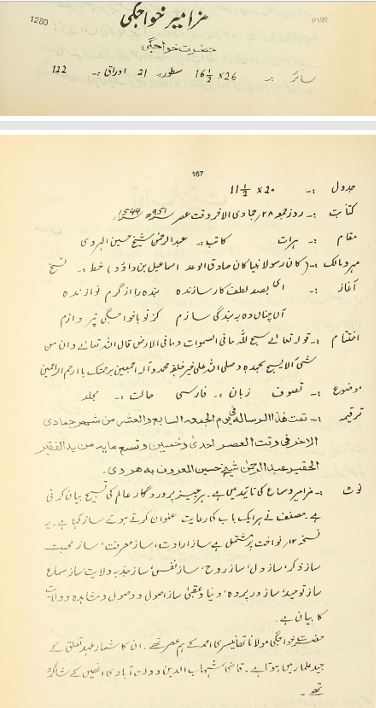 1280
P199
مزامیر خواجگی
حضرت خواجگی
سائز :- 26x16½ سطور :- 21 اوراق :- 122
167
جدول :- 20x11½
کتابت :- روز جمعہ ۲۸ جمادی الآخر وقت عصر 951ھ 1544ء
مقام :- ہرات کاتب :- عبدالرحمٰن شیخ حسین الہروی
مہر و مالک :- (کان رسولا نبیا کان صادق الوعد اسماعیل بن داؤد) خط :- نسخ
آغاز :- ای بصد لطف کارسازندہ بندہ را از گرم نوازندہ
آں چناں دہ بہ بندگی سازم کز تو با خواجگی پر دازم
اختتام :- قولہ تعالےٰ یسبح للہ مافی السموات ومافی الارض قال اللہ تعالےٰ وان من
شئی الا یسبح بحمدہ وصلی اللہ علی خیر خلقہ محمد وآلہ اجمعین برحمتک یا ارحم الراحمین
موضوع :- تصوف زبان :- فارسی حالت :- مجلد
ترقیمہ :- تمت ھذا الرسالہ فی یوم الجمعہ السابع والعشر من شہر جمادی
الاخر فی وقت العصر احدی وخمسین وتسع مایہ من ید الفقیر
الحقیر عبدالرحمٰن شیخ حسین المعروف بہ ھروی
نوٹ :- مزامیر وسماع کی تائید میں ہے۔ ہر چیز پروردگار عالم کی تسبیح بیان کرتی
ہے مصنف نے ہر ایک باب کا رعایت عنوان کرتے ہوئے ساز کہا ہے۔ یہ
نسخہ ۱۲ نواخت پر مشتمل ہے ساز ارادت، ساز معرفت، ساز محبت
ساز ذکر، ساز دل، ساز روح، ساز نفس، ساز جذبہ ولایت ساز سماع
ساز توحید، ساز در پردہ، دنیا و عقبیٰ ساز اصول و وصول و مشاہدہ و ولایت
کا بیان ہے۔
حضرت خواجگی مولانا تھانیسری احمد کے ہم عصر تھے۔ ان کا شمار عہد تغلق کے
جید علماء میں ہوتا ہے۔ قاضی شہاب الدین دولت آبادی انھیں کے شاگرد
تھے۔